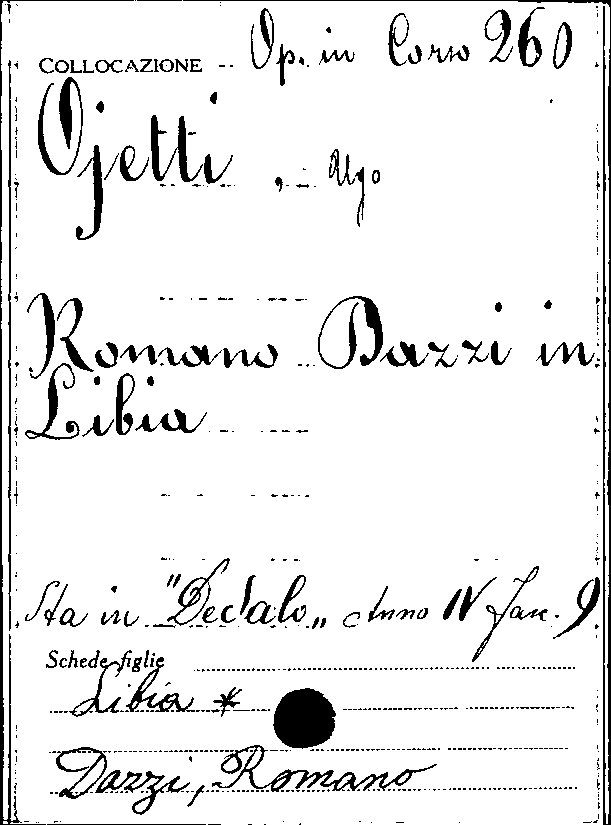 COLLOCAZIONE Op. in Corso 260
Ojetti, Ugo
Romano Dazzi in
Libia
Sta in "Dedalo„ Anno IV Fasc. 9
Schede figlie
Libia *
Dazzi, Romano